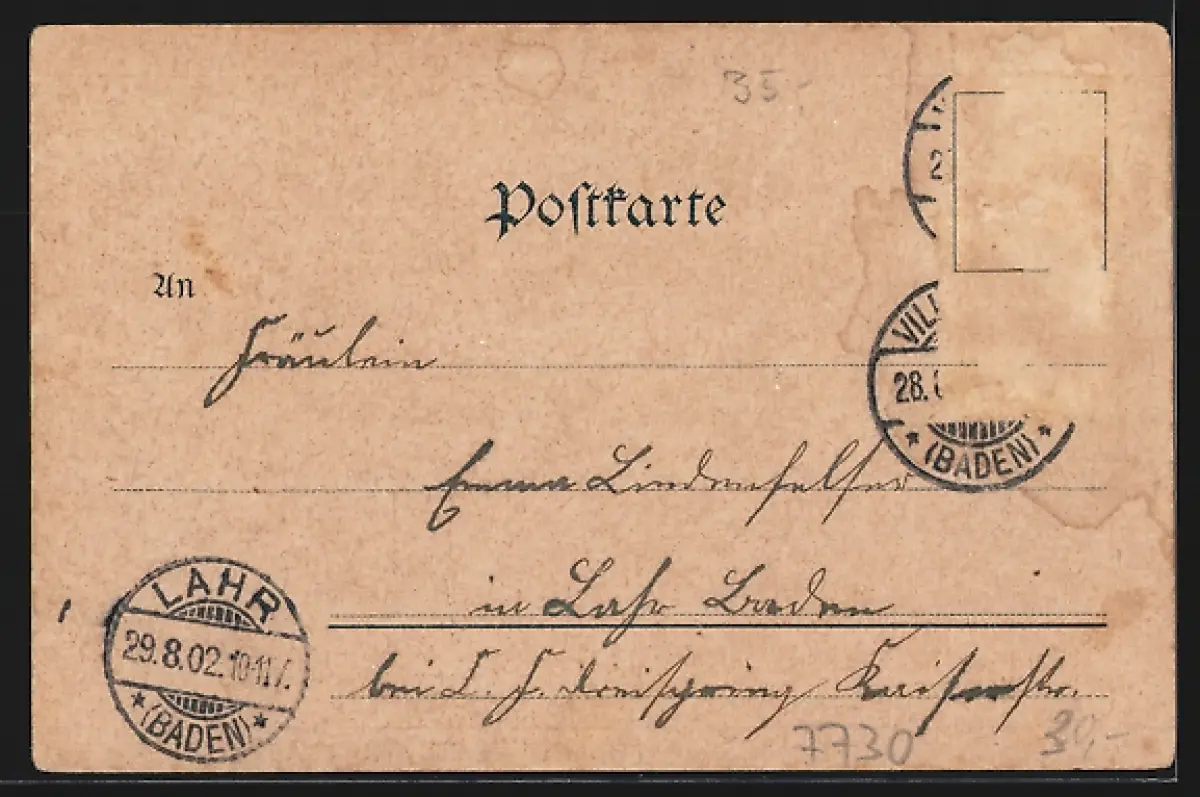 35,-
Postkarte
An
Fräulein
VILL
28.
(BADEN)
Emma Lindenfelser
in Lahr Baden
LAHR
29.8.02.10-11V.
(BADEN)
bei Kaiserstr.
7730
30,-